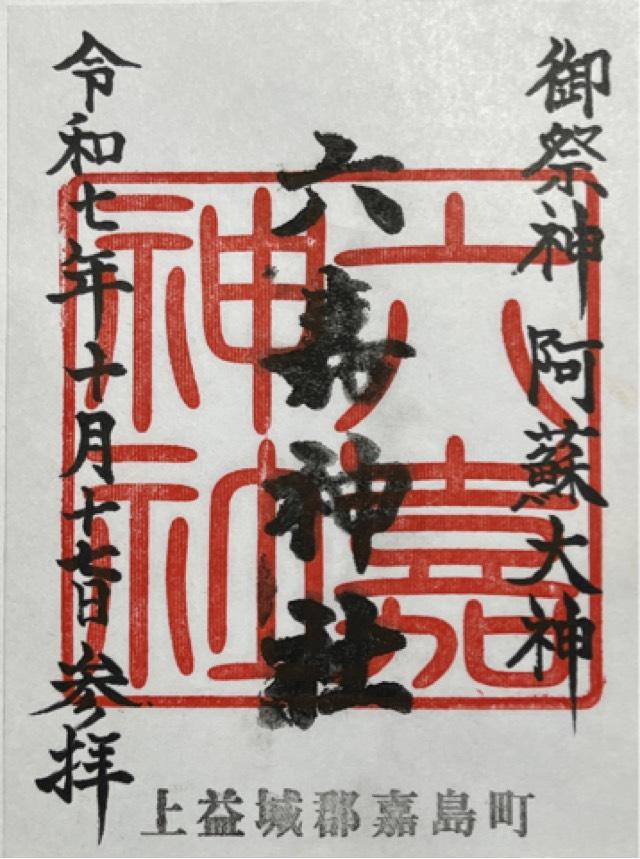 御祭神 阿蘇大神
六嘉神社
六嘉
神社
令和七年十月十七日 参拝
上益城郡嘉島町